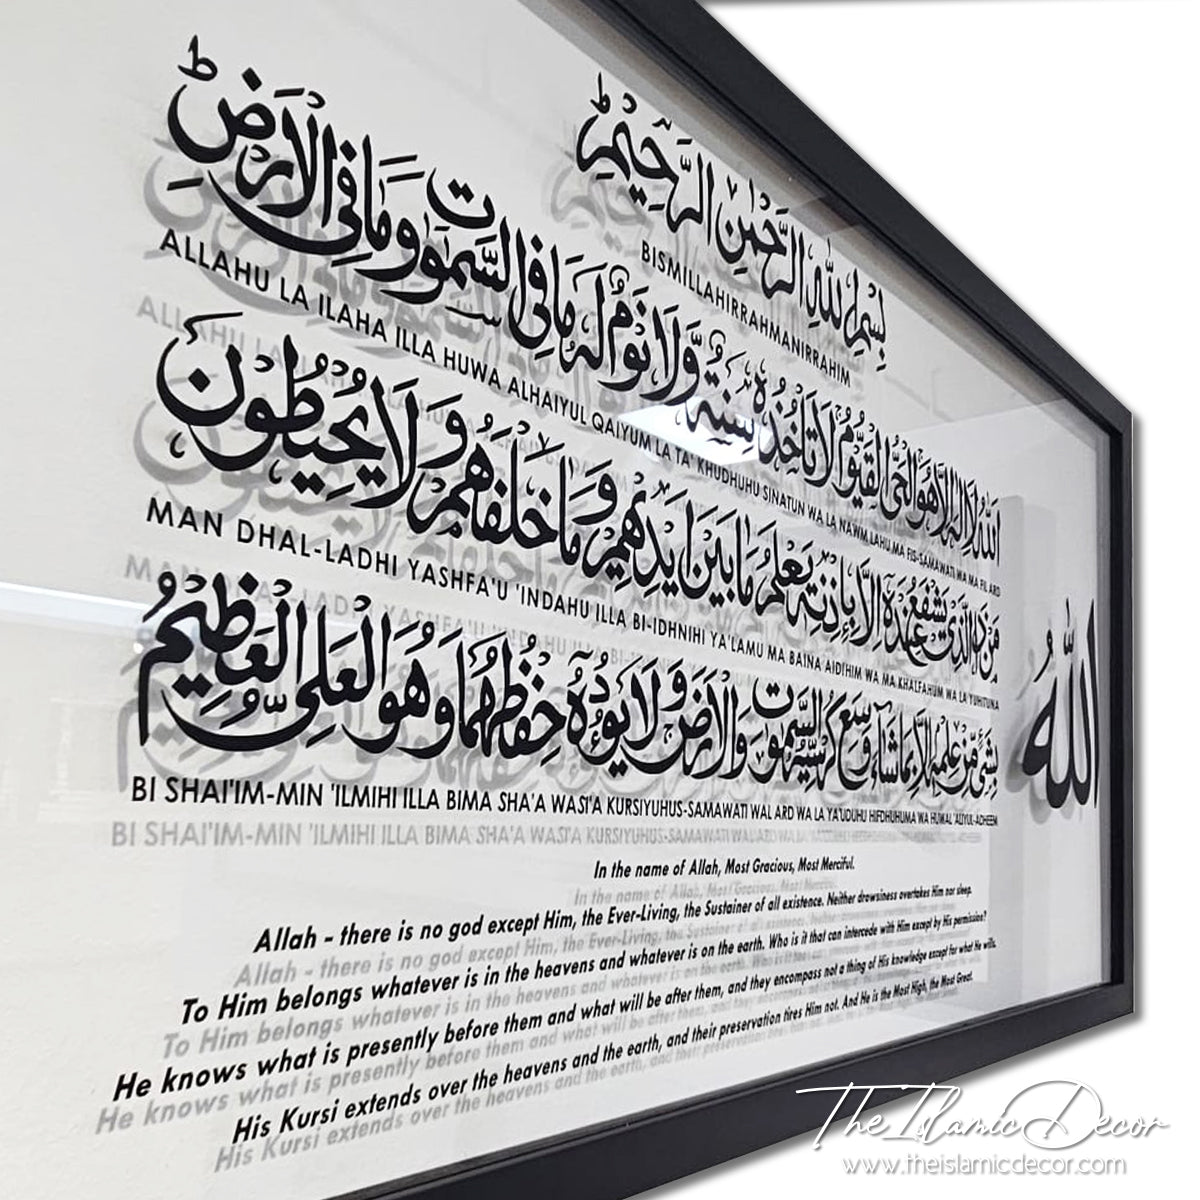 بِسْمِ اللّٰهِ الرَّحْمٰنِ الرَّحِيْمِ
BISMILLAHIRRAHMANIRRAHIM
اَللّٰهُ لَا اِلٰهَ اِلَّا هُوَ الْحَىُّ الْقَيُّوْمُ لَا تَاْخُذُهٗ سِنَةٌ وَّلَا نَوْمٌ لَهٗ مَا فِى السَّمٰوٰتِ وَمَا فِى الْاَرْضِ
ALLAHU LA ILAHA ILLA HUWA ALHAIYUL QAIYUM LA TA' KHUDHUHU SINATUN WA LA NAWM LAHU MA FIS-SAMAWATI WA MA FIL ARD
مَنْ ذَا الَّذِىْ يَشْفَعُ عِنْدَهٗ اِلَّا بِاِذْنِهٖ يَعْلَمُ مَا بَيْنَ اَيْدِيْهِمْ وَمَا خَلْفَهُمْ وَلَا يُحِيْطُوْنَ
MAN DHAL-LADHI YASHFA'U 'INDAHU ILLA BI-IDHNIHI YA'LAMU MA BAINA AIDIHIM WA MA KHALFAHUM WA LA YUHITUNA
بِشَىْءٍ مِّنْ عِلْمِهٖ اِلَّا بِمَا شَآءَ وَسِعَ كُرْسِيُّهُ السَّمٰوٰتِ وَالْاَرْضَ وَلَا يَـُٔوْدُهٗ حِفْظُهُمَا وَهُوَ الْعَلِىُّ الْعَظِيْمُ
BI SHAI'IM-MIN 'ILMIHI ILLA BIMA SHA'A WASI'A KURSIYUHUS-SAMAWATI WAL ARD WA LA YA'UDUHU HIFDHUHUMA WA HUWAL 'ALIYUL-ADHEEM
اللّٰهُ
In the name of Allah, Most Gracious, Most Merciful.
Allah - there is no god except Him, the Ever-Living, the Sustainer of all existence. Neither drowsiness overtakes Him nor sleep.
To Him belongs whatever is in the heavens and whatever is on the earth. Who is it that can intercede with Him except by His permission?
He knows what is presently before them and what will be after them, and they encompass not a thing of His knowledge except for what He wills.
His Kursi extends over the heavens and the earth, and their preservation tires Him not. And He is the Most High, the Most Great.
The Islamic Decor
www.theislamicdecor.com